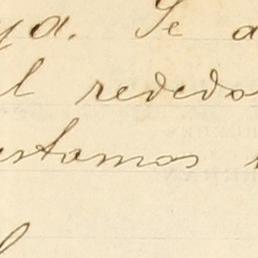 ya. Se a
l rededo
ustamos